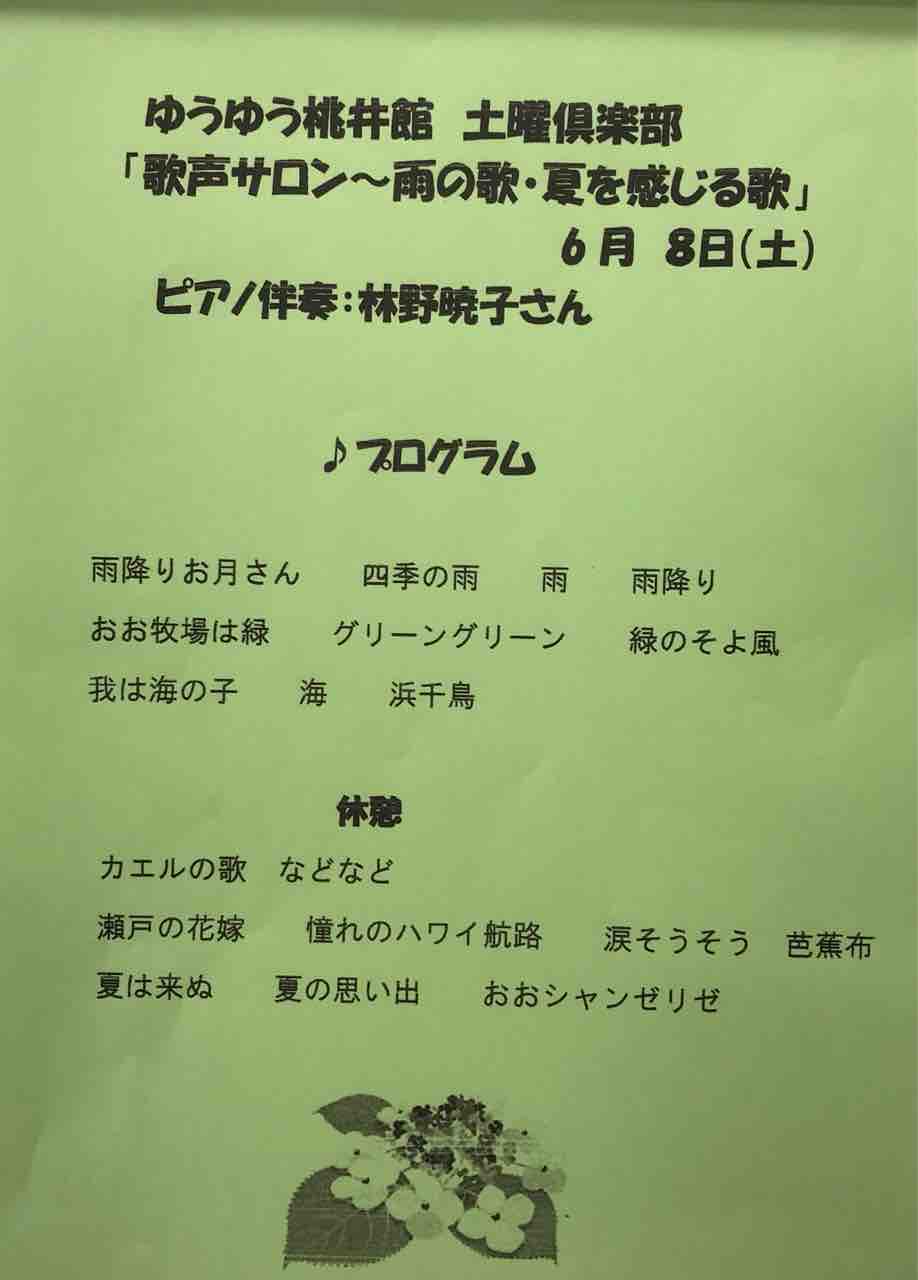 ゆうゆう桃井館 土曜倶楽部
「歌声サロン～雨の歌・夏を感じる歌」
6月 8日(土)
ピアノ伴奏:林野暁子さん
♪プログラム
雨降りお月さん 四季の雨 雨 雨降り
おお牧場は緑 グリーングリーン 緑のそよ風
我は海の子 海 浜千鳥
休憩
カエルの歌 などなど
瀬戸の花嫁 憧れのハワイ航路 涙そうそう 芭蕉布
夏は来ぬ 夏の思い出 おおシャンゼリゼ